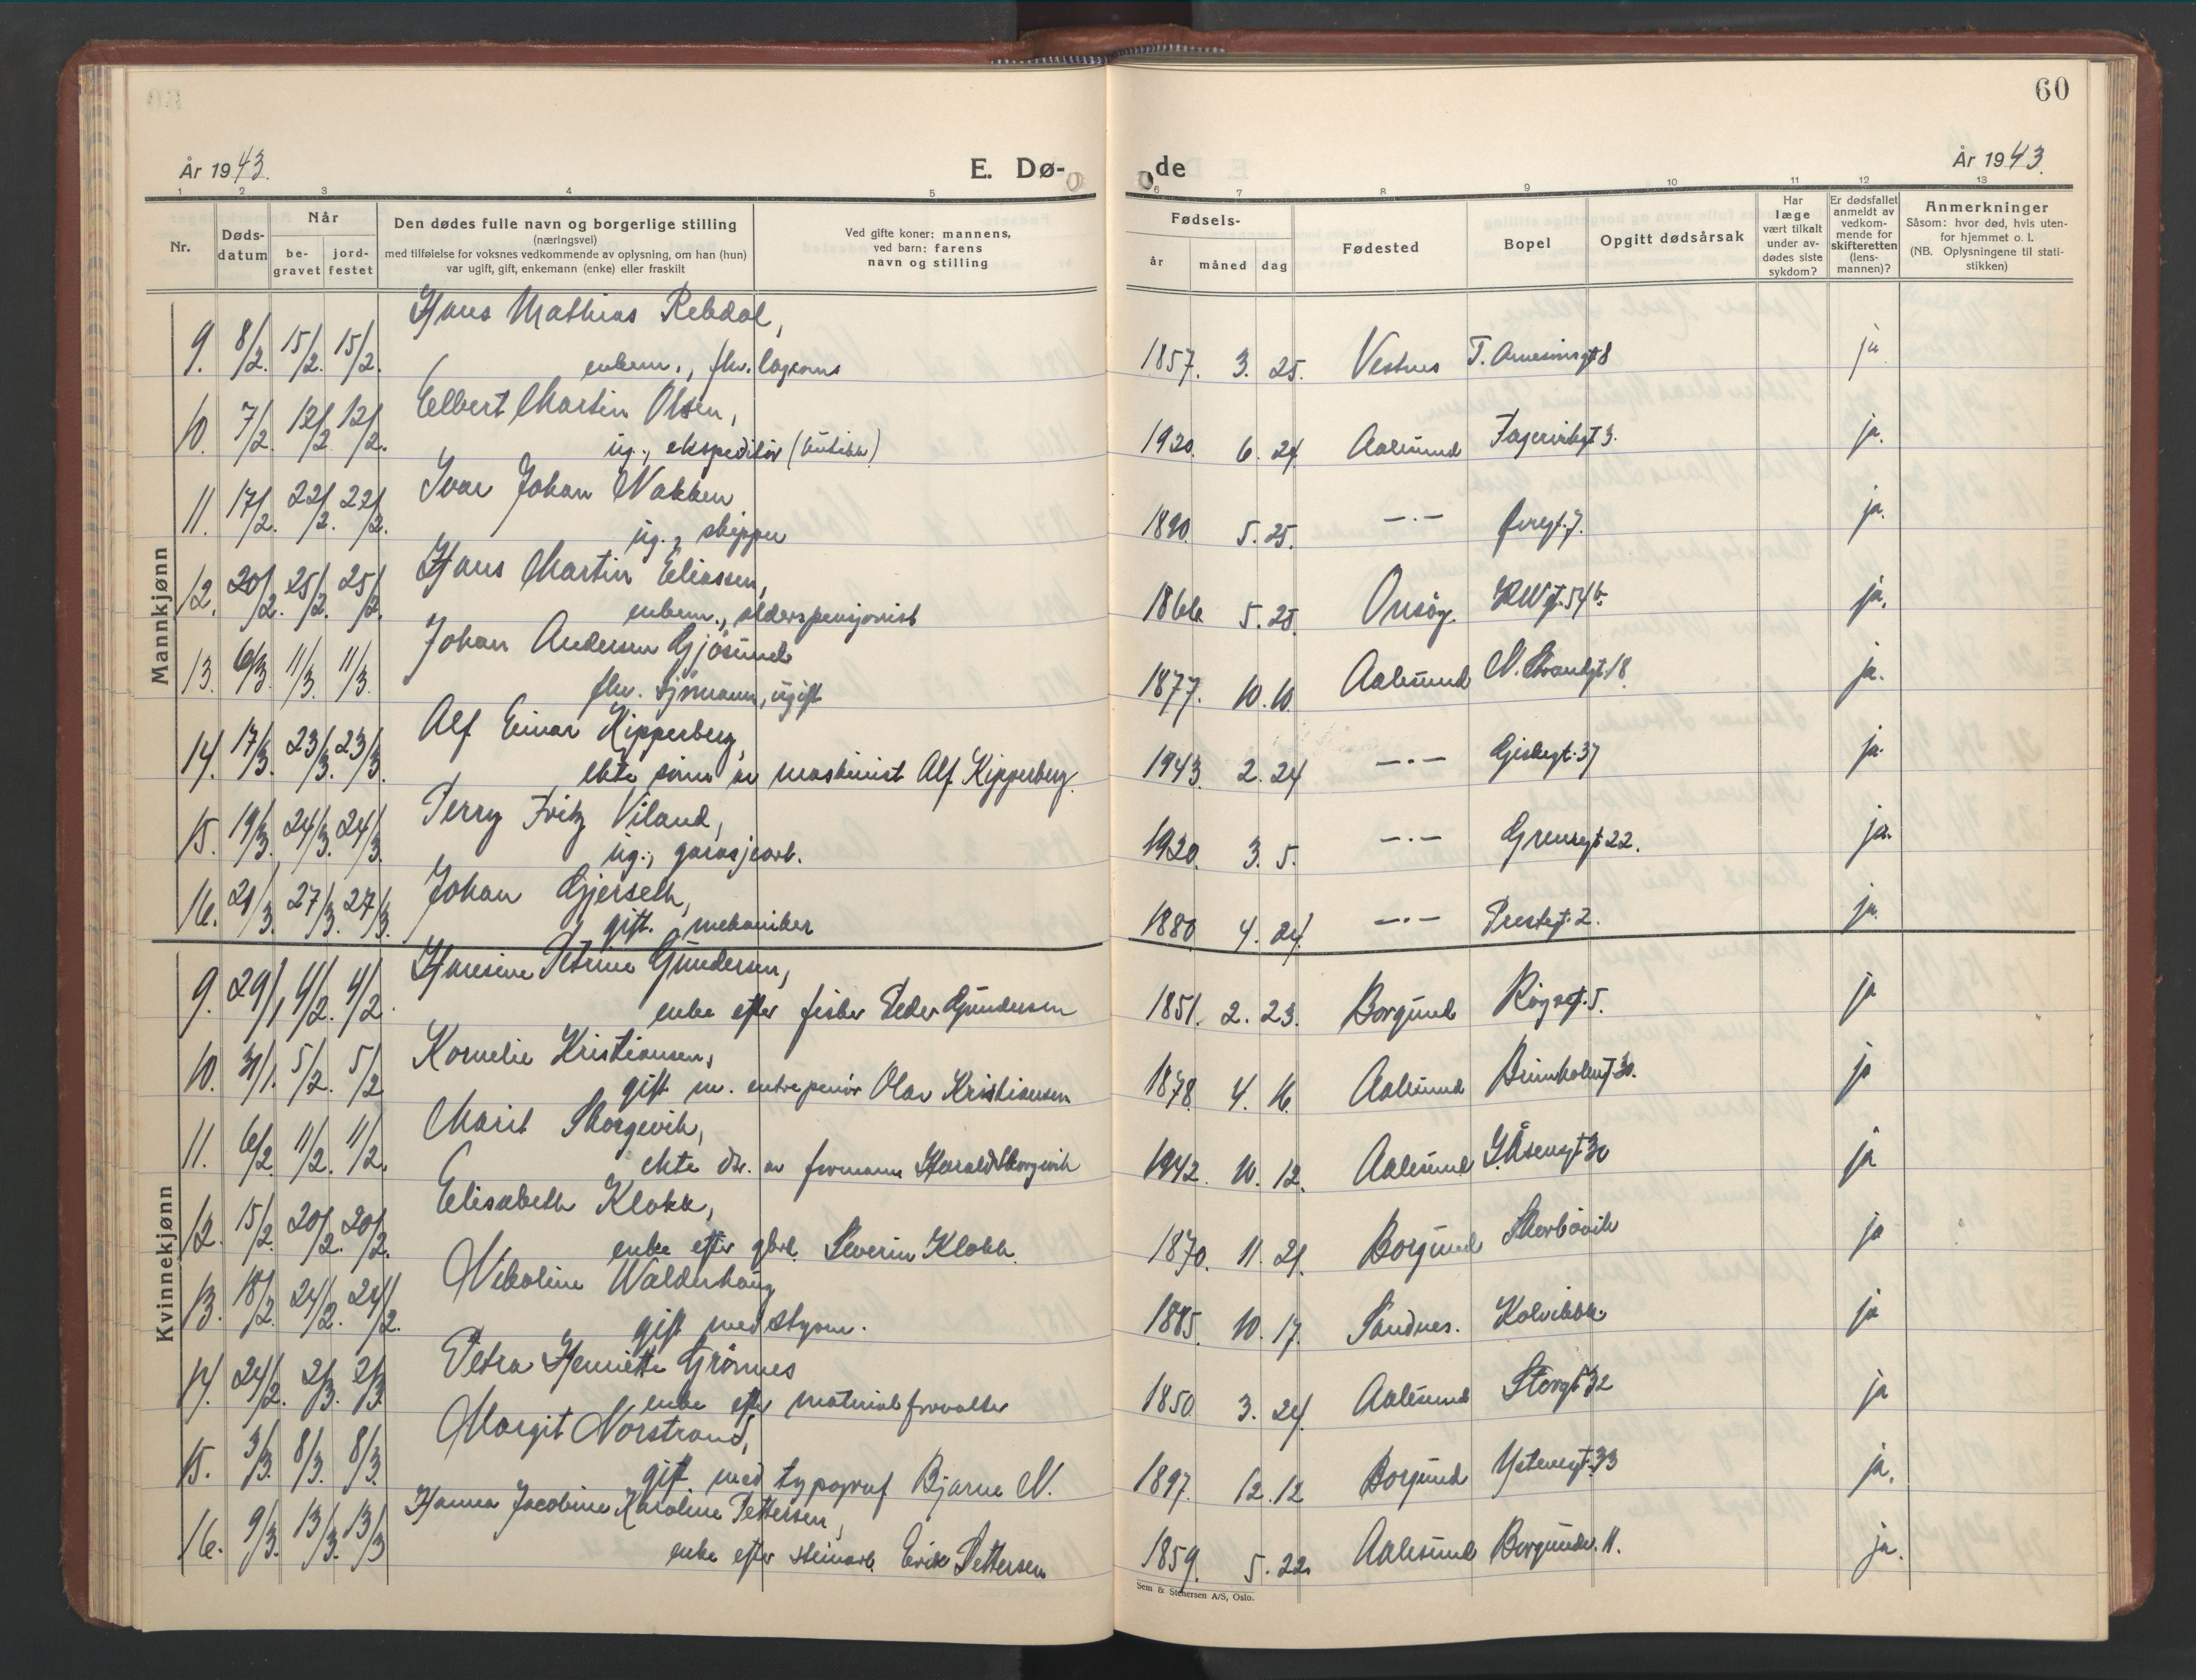 60
År 1943.
E. Dø-
de
År 1943.
1 2 3 4 5 6 7 8 9 10 11 12 13
Nr.
Døds-
datum
Når
be-
gravet
jord-
festet
Den dødes fulle navn og borgerlige stilling
(næringsvei)
med tilføielse for voksnes vedkommende av oplysning, om han (hun)
var ugift, gift, enkemann (enke) eller fraskilt
Ved gifte koner: mannens,
ved barn: farens
navn og stilling
Fødsels-
år
måned
dag
Fødested
Bopel
Opgitt dødsårsak
Har
læge
vært tilkalt
under av-
dødes siste
sykdom?
Er dødsfallet
anmeldt av
vedkom-
mende for
skifteretten
(lens-
mannen)?
Anmerkninger
Såsom: hvor død, hvis uten-
for hjemmet o. l.
(NB. Oplysningene til stati-
stikken)
Mannkjønn
Hans Mathias Rebdal,
9. 8/2. 15/2. 15/2. enkem., fhv. 1857. 3. 25. Vestnes ja
Elbert Martin Olsen,
10. 7/2. 12/2 12/2. ug., ekspeditør (butikk) 1920. 6. 24. Aalesund ja.
Ivar Johan Nakken
11. 17/2. 22/2. 22/2. ug., skipper 1890. 5. 25. —.— Øvregt. 7. ja.
Hans Martin Eliassen,
12. 20/2. 25/2. 25/2. enkem., alderspensjonist 5. 25. Onsøy. ja.
Johan Andersen Gjøsund
13. 6/3. 11/3. 11/3. fhv. sjømann, ugift 1877. 10. 10. Aalesund N. Strandgt. 18. ja.
Alf Einar Kipperberg,
14. 17/3. 23/3. 23/3. ekte sønn av maskinist Alf Kipperberg. 1943. 2. 24 —.— Giskegt. 37 ja.
Perry Fritz Viland,
15. 19/3. 24/3. 24/3. ug., garasjearb. 1920. 3. 5. —.— Grensegt 22. ja.
Johan Gjerseth,
16. 21/3. 27/3. 27/3. gift. mekaniker 1880 4. 24. —.— Prestegt. 2. ja.
Kvinnekjønn
Hansine Petrine Gundersen,
9. 29/1 4/2. 4/2. enke efter fisker Peder Gundersen 1851. 2. 23. Borgund 5. ja
Kornelie Kristiansen,
10. 31/1. 5/2. 5/2 gift m. entrepenør Olav Kristiansen 1878. 4. 16. Aalesund Brunholmgt. 30. ja
Marit Skorgevik,
11. 6/2. 11/2. 11/2. ekte dtr. av formann Harald Skorgevik 1942. 10. 12. Aalesund I. Åsensgt 30 ja
Elisabeth Klokk,
12. 15/2. 20/2. 20/2. enke efter gbrk. Severin Klokk. 1870. 11. 21. Borgund Skarbøvik ja
Nikoline Walderhaug
13. 18/2. 24/2. 24/2. gift med styrm. 10. 17. Sandnes. ja
Petra Henriette Grønnes
14. 24/2. 2/3. 2/3. enke efter materialforvalter 1850 3. 24. Aalesund Storgt 32 ja
Margit Norstrand,
15. 3/3. 8/3. 8/3. gift med typograf Bjarne N. 1897. 12. 12 Borgund 33 ja.
Hanna Jacobine Karoline Pettersen,
16. 9/3. 13/3. 13/3 enke efter steinarb. Erik Pettersen 1859. 5. 22. Aalesund Borgundv. 11. ja.
Sem & Stenersen A/S, Oslo.